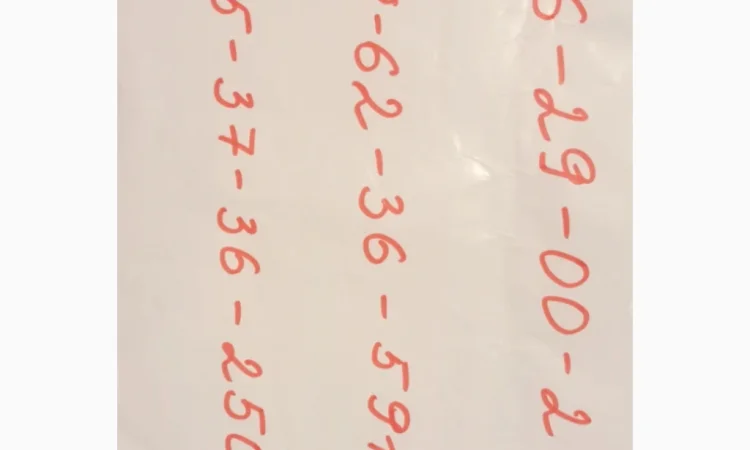 -29-00-2
-62-36-59
5-37-36-25